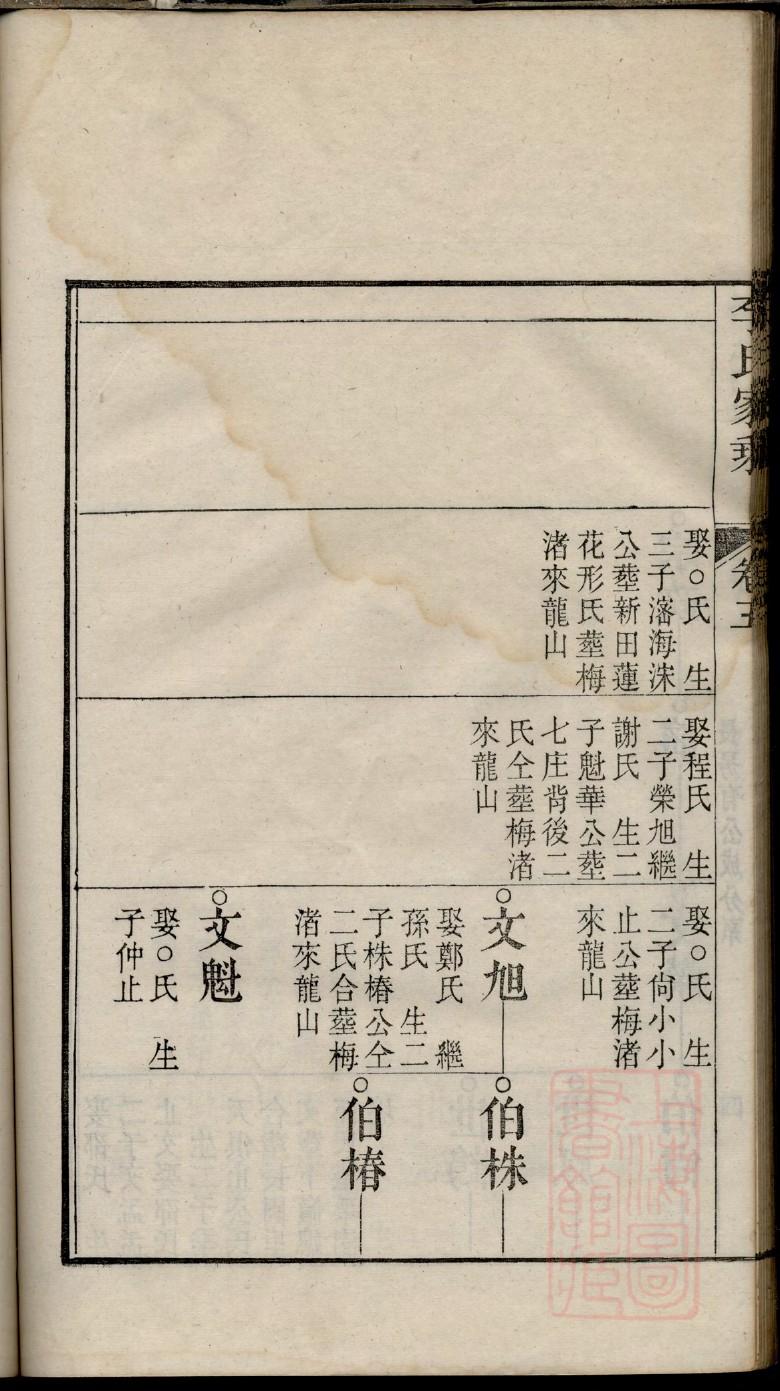 李氏家乘
卷五
娶○氏 生
三子瀋海洙
公塟新田蓮
花形氏塟梅
渚來龍山
娶程氏 生
二子榮旭繼
謝氏 生二
子魁華公塟
七庄背後二
氏仝塟梅渚
來龍山
娶○氏 生
二子尙小小
止公塟梅渚
來龍山
○文旭
娶鄭氏 繼
孫氏 生二
子株椿公仝
二氏合塟梅
渚來龍山
○文魁
娶○氏 生
子仲止
○伯株
○伯椿